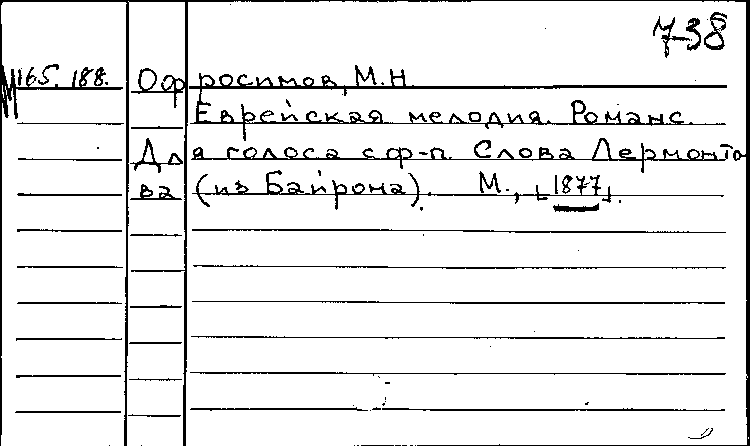 738
М165.188. Офросимов, М.Н.
Еврейская мелодия. Романс.
Для голоса с ф-п. Слова Лермонто
ва (из Байрона). М., [1877].